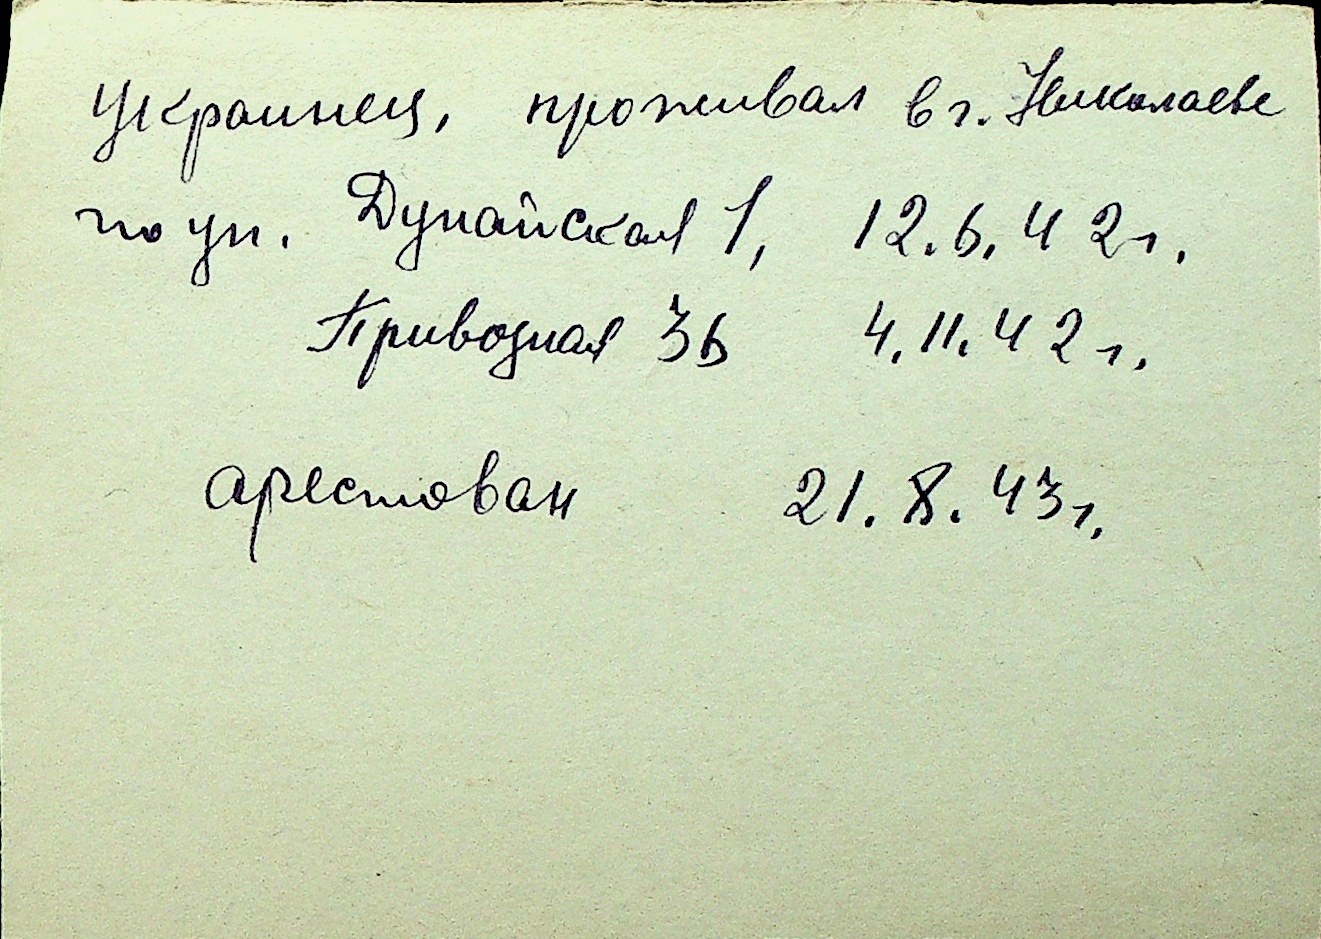 Украинец, проживал в г. Николаеве
по ул. Дунайская 1, 12.6.42г.
Привозная 36 4.11.42г.
арестован 21.8.43г.